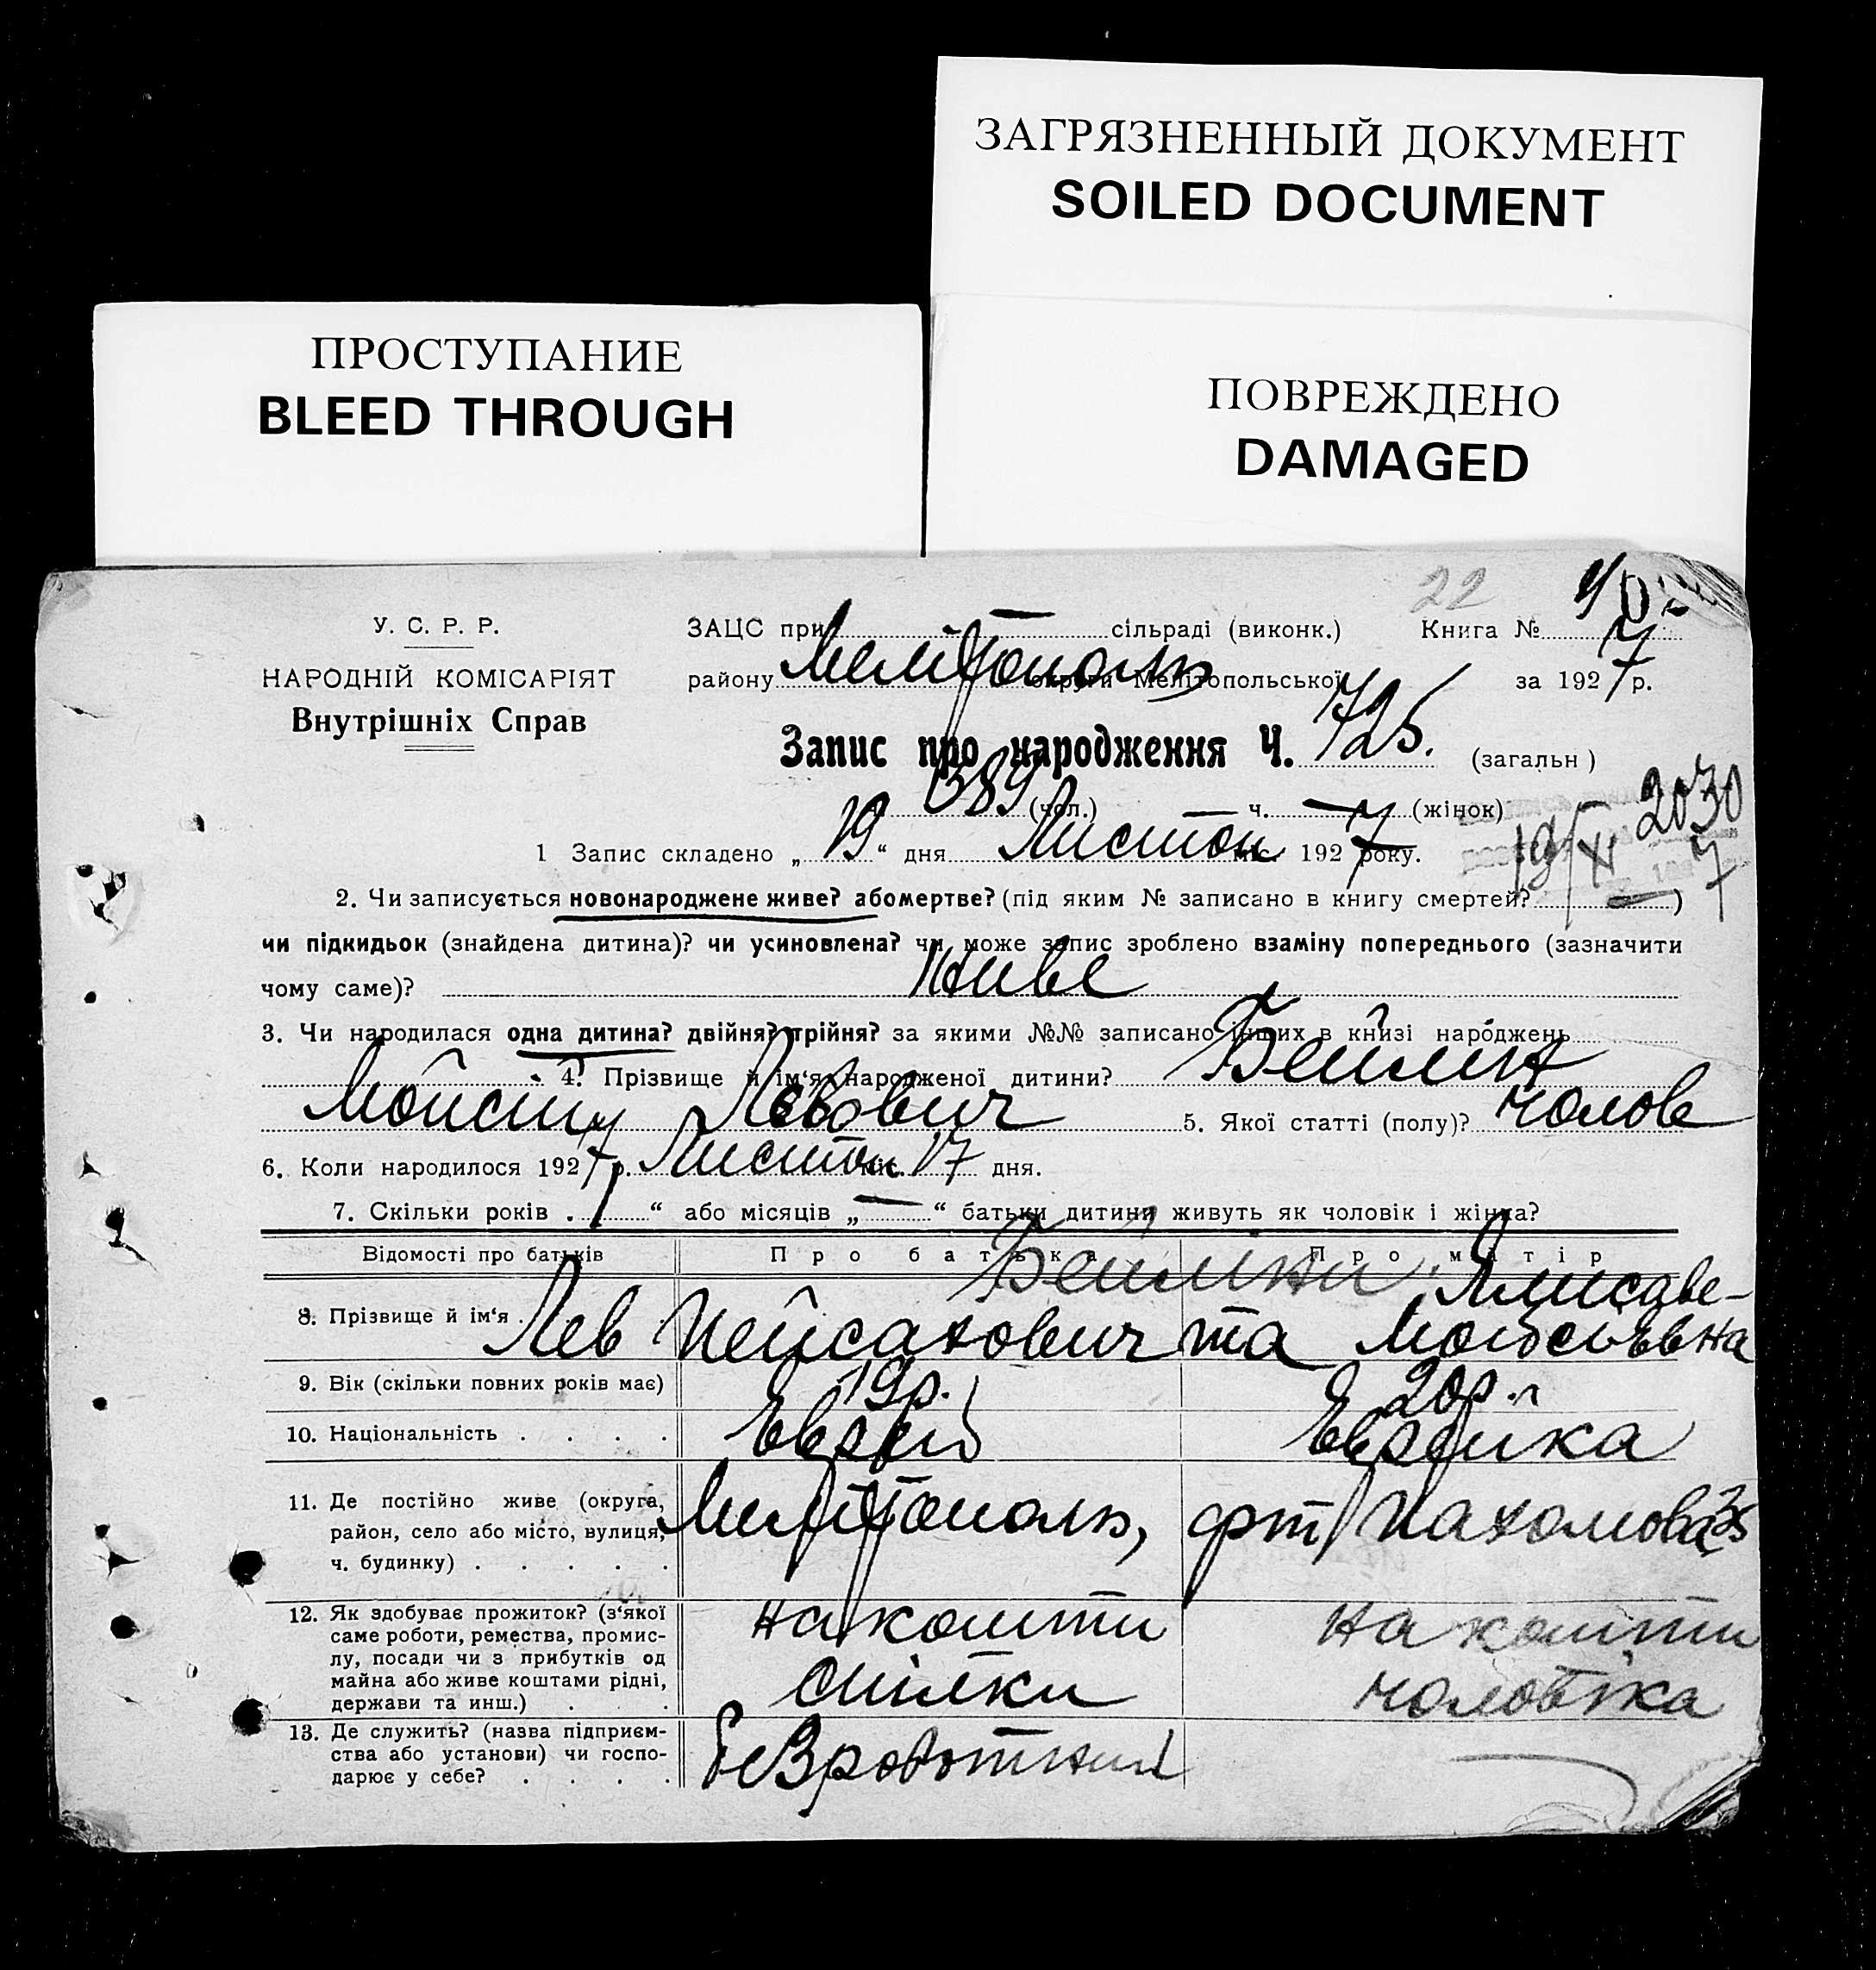 ЗАГРЯЗНЕННЫЙ ДОКУМЕНТ
SOILED DOCUMENT
ПРОСТУПАНИЕ
BLEED THROUGH
ПОВРЕЖДЕНО
DAMAGED
22
У. С. Р. Р.
НАРОДНІЙ КОМІСАРІЯТ
Внутрішніх Справ
ЗАЦС при сільраді (виконк.) Книга №
району Мелітополь округи Мелітопольської за 1927 р.
Запис про народження Ч. 725. (загальн)
389 (чол.) — ч. — (жінок)
2030
19/XI 7
1 Запис складено „19“ дня Листоп міс. 1927 року.
2. Чи записується новонароджене живе? або мертве? (під яким № записано в книгу смертей? — )
чи підкидьок (знайдена дитина)? чи усиновлена? чи може запис зроблено взаміну попереднього (зазначити
чому саме)? Живе
3. Чи народилася одна дитина? двійня? трійня? за якими №№ записано інших в книзі народжень
4. Прізвище й ім‘я народженої дитини? Бейлін
Мойсій Левович 5. Якої статті (полу)? чолов
6. Коли народилося 1927 р. Листоп міс. 17 дня.
7. Скільки років 1 “ або місяців „—“ батьки дитини живуть як чоловік і жінка?
Відомості про батьків Про батька Про матір
Бейліни
8. Прізвище й ім‘я . Лев Пейсахович та Мойсеівна
9. Вік (скільки повних років має) 19р. 20р.
10. Національність . . . . Еврей Еврейка
11. Де постійно живе (округа,
район, село або місто, вулиця,
ч. будинку) . . . . . Мелітополь, Пахомова 35
12. Як здобуває прожиток? (з‘якої
саме роботи, ремества, промис-
лу, посади чи з прибутків од
майна або живе коштами рідні,
держави та инш.) . . на кошти
спілки
на кошти
чоловіка
13. Де служить? (назва підприєм-
ства або установи) чи госпо-
дарює у себе? . . . . Безроботний